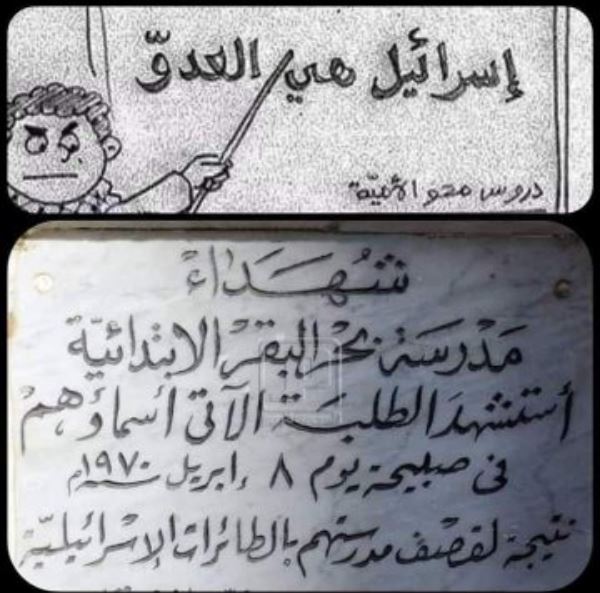 إسرائيل هي العدوّ
دروس محو الأميّة
شُهَدَاءُ
مَدْرَسَة بَحْر البَقَرْ الابْتِدائيّة
أستشهدَ الطلَبَة الآتى أسماؤهمْ
فى صبيحة يوم ٨ إبريل سنة ١٩٧٠م
نتيجة لقصف مدرستهم بالطائرات الإسرائيليّة